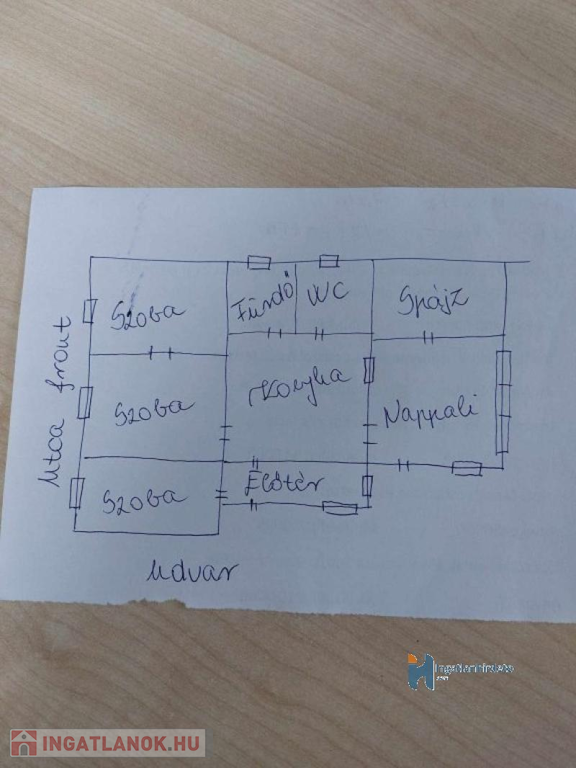 Szoba
Fürdő
WC
Spájz
Utca front
Szoba
Konyha
Nappali
Szoba
Előtér
Udvar
Ingatlanhirdető
.com
INGATLANOK.HU